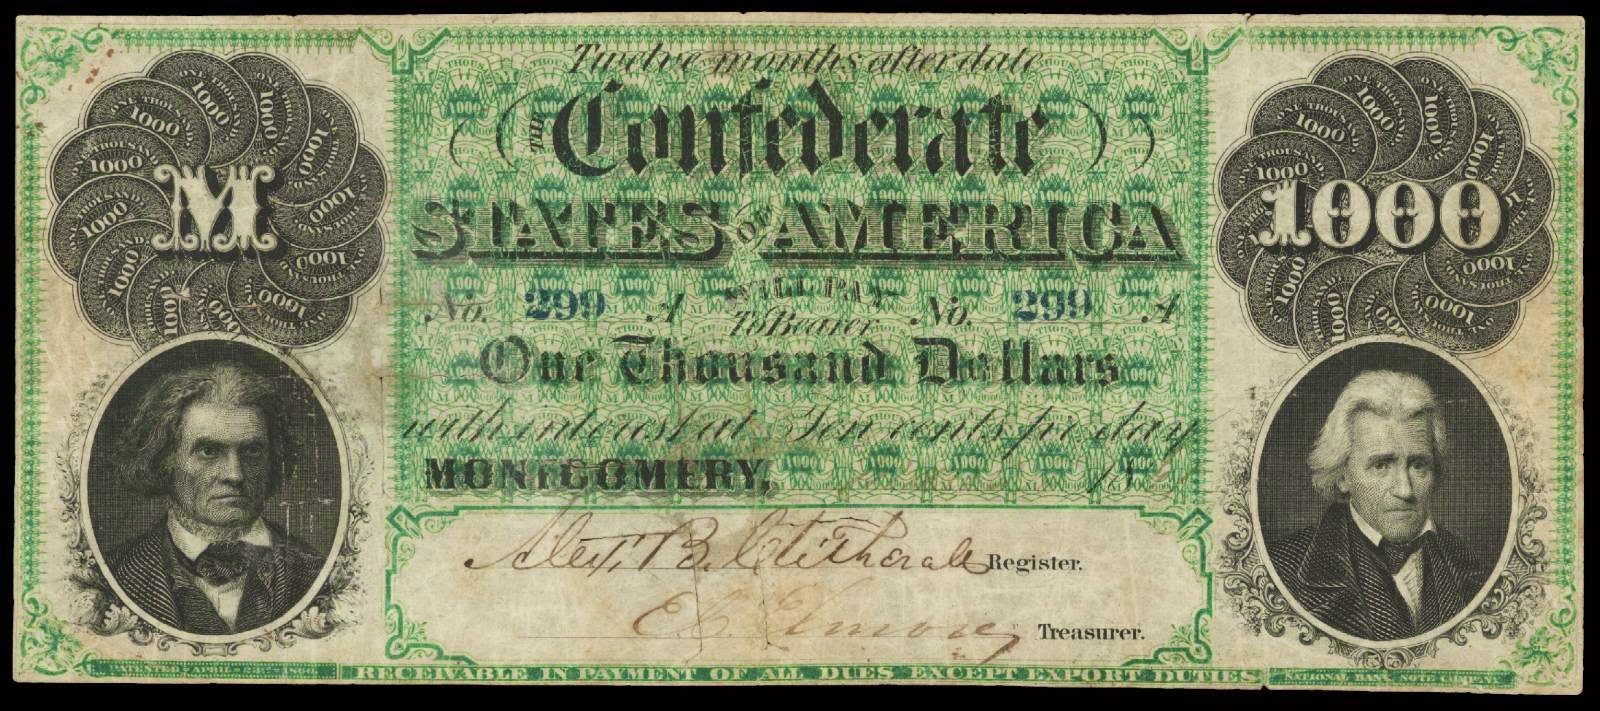 Twelve months after date
THE Confederate
STATES OF AMERICA
WILL PAY
No. 299 A To Bearer No. 299 A
One Thousand Dollars
with interest at Ten cents per day
MONTGOMERY, 18
Alex. B. Clitherall Register.
E. C. Elmore Treasurer.
RECEIVABLE IN PAYMENT OF ALL DUES EXCEPT EXPORT DUTIES
NATIONAL BANK NOTE COMPANY
M
1000
ONE THOUSAND
1000